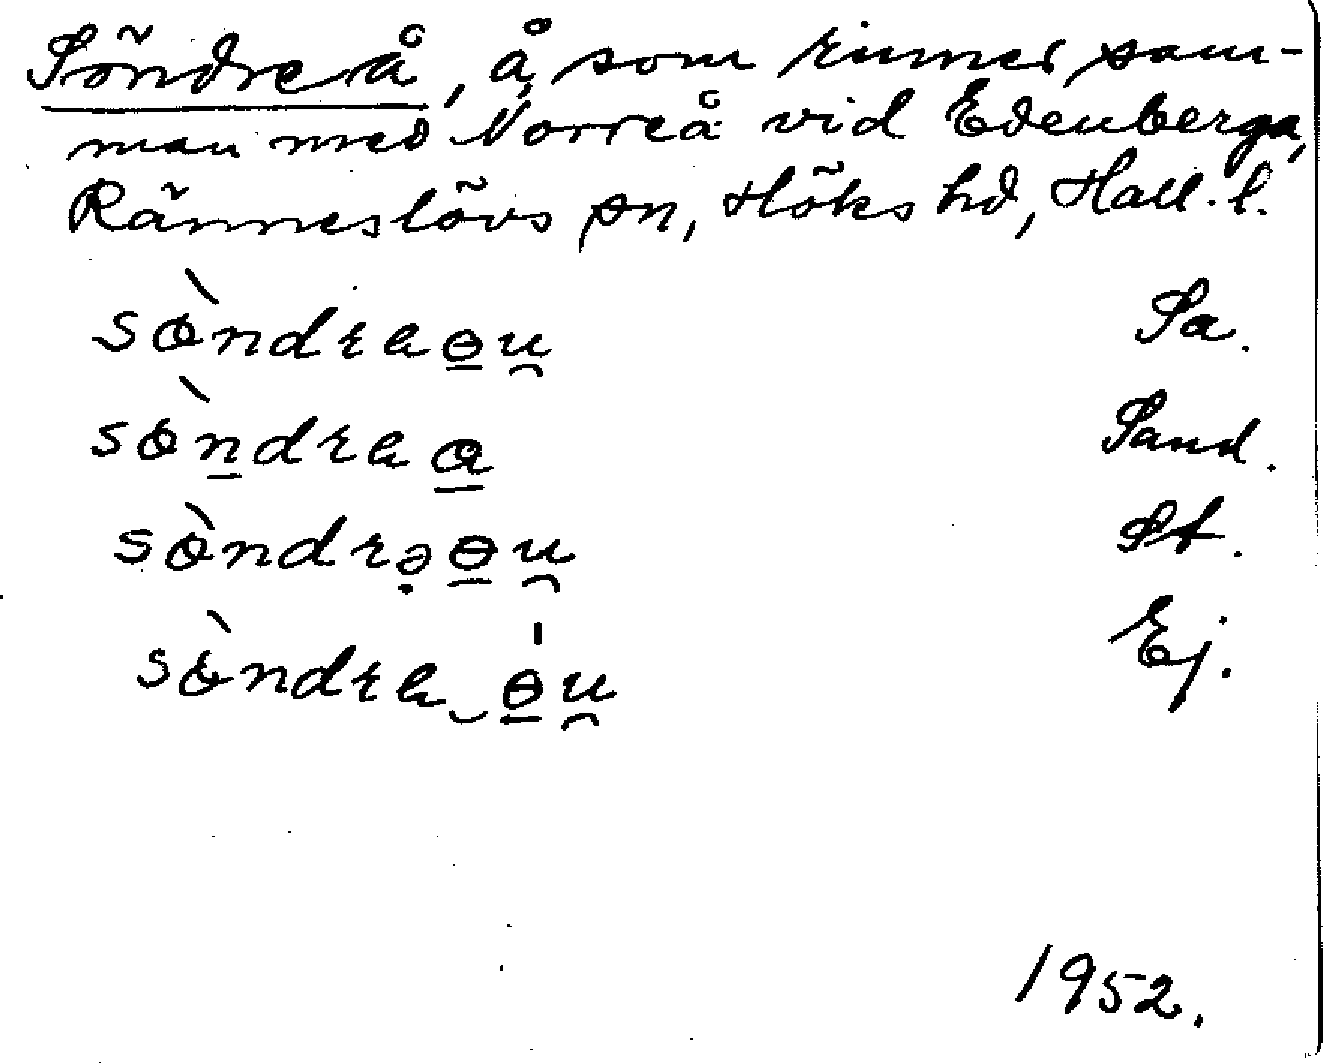 Söndreå, å, som rinner sam-
man med Norreå vid Edenberga,
Ränneslövs sn, Höks hd, Hall. l.
sɵ̀ndraɵ̲u̯ Sa.
sɵ̀n̲draɑ̲ Sand.
sɵ̀ndrə̣ɵ̲u̯ St.
sɵ̀ndra‿ɵ̲̍u̯ Ej.
1952.